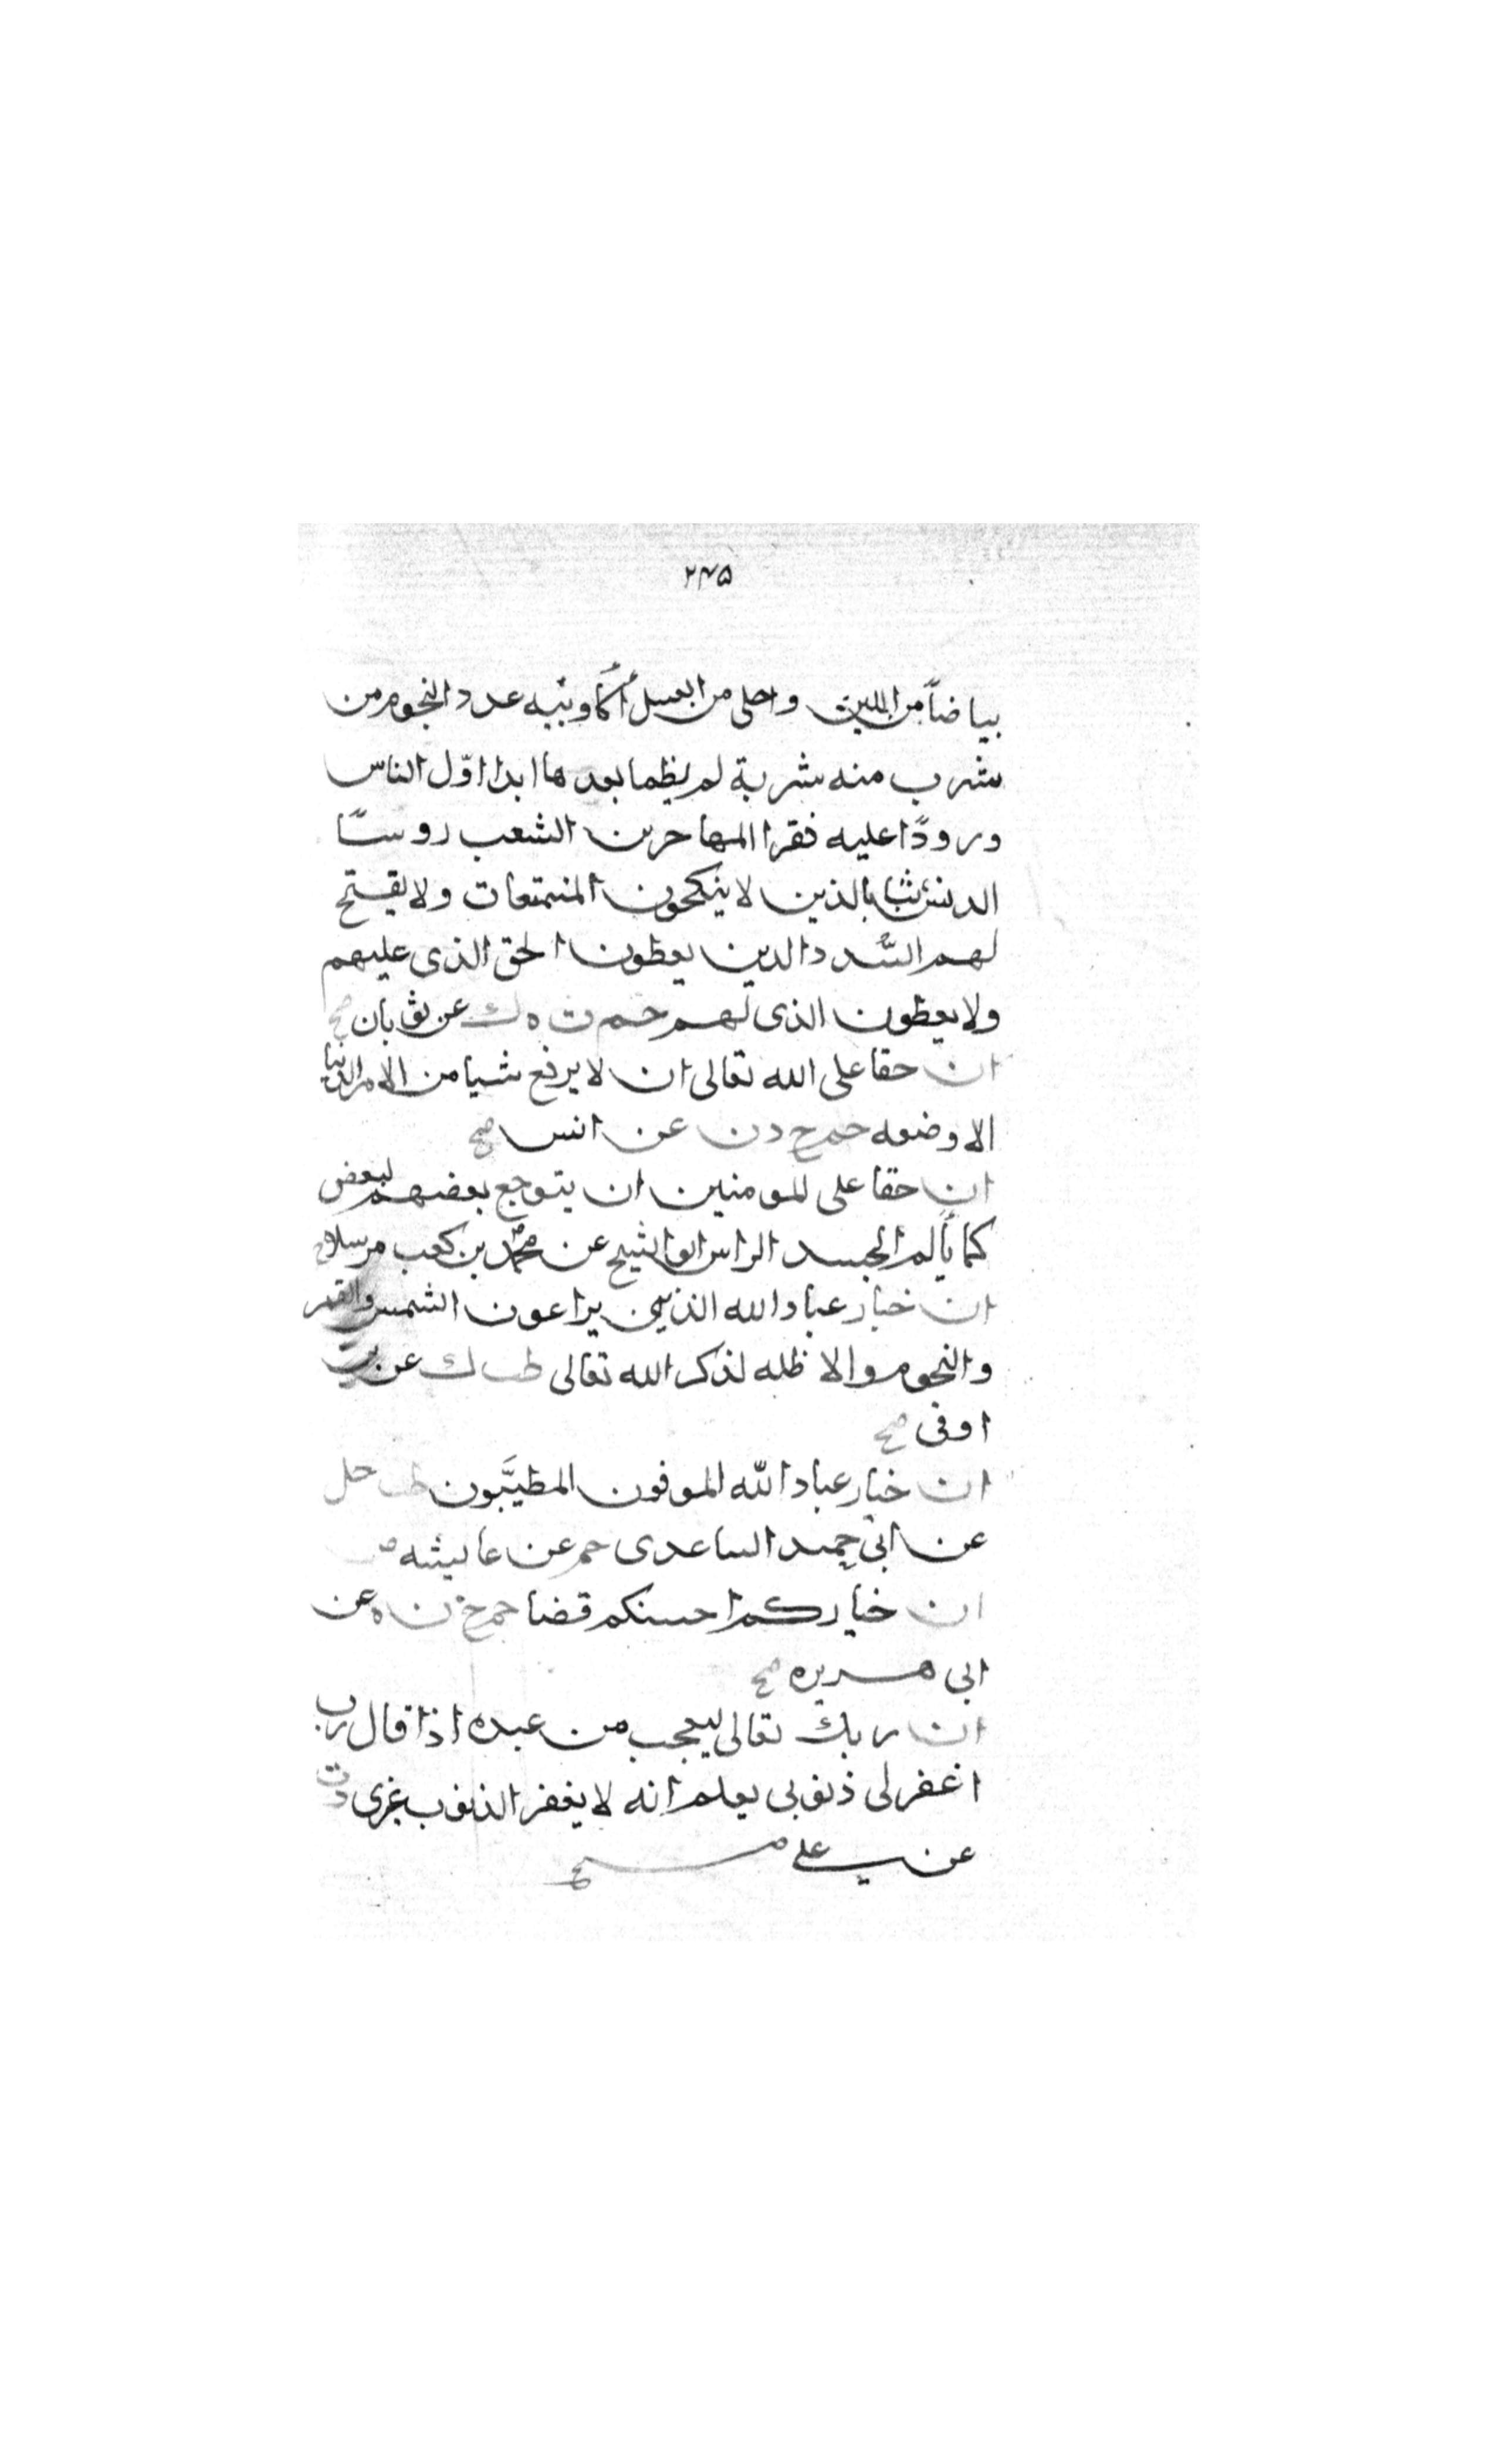 ٢٣٥
بياضاً من اللبن واحلى من العسل اكاويبه عدد النجوم من
شرب منه شربة لم يظما بعدها ابدا اوّل الناس
ورودًا عليه فقرا المهاجرين الشعب روسًا
الدنس ثيابا الذين لا ينكحون المنتمتعات ولا يفتح
لهم السُّدد الذين يعطون الحق الذى عليهم
ولا يعطون الذى لهم حم ت ه ك عن ثوبان صح
ان حقا على الله تعالى ان لا يرفع شيا من الامر الدنيا
الا وضعه حم خ د ن عن انس صح
ان حقا على المومنين ان يتوجع بعضهم لبعض
كما يألم الجسد الراس ابو الشيخ عن محمد بن كعب مرسلا
ان خيار عباد الله الذين يراعون الشمس والقمر
والنجوم والاظله لذكر الله تعالى طب ك عن
اوفى صح
ان خيار عباد الله الموفون المطيَّبون طب حل
عن ابى حميد الساعدى حم عن عايشه
ان خياركم احسنكم قضا حم خ ن ه عن
ابى هريره صح
ان ربك تعالى ليعجب من عبده اذا قال رب
اغفر لى ذنوبى يعلم انه لا يغفر الذنوب غيرى د ت
عن على صح